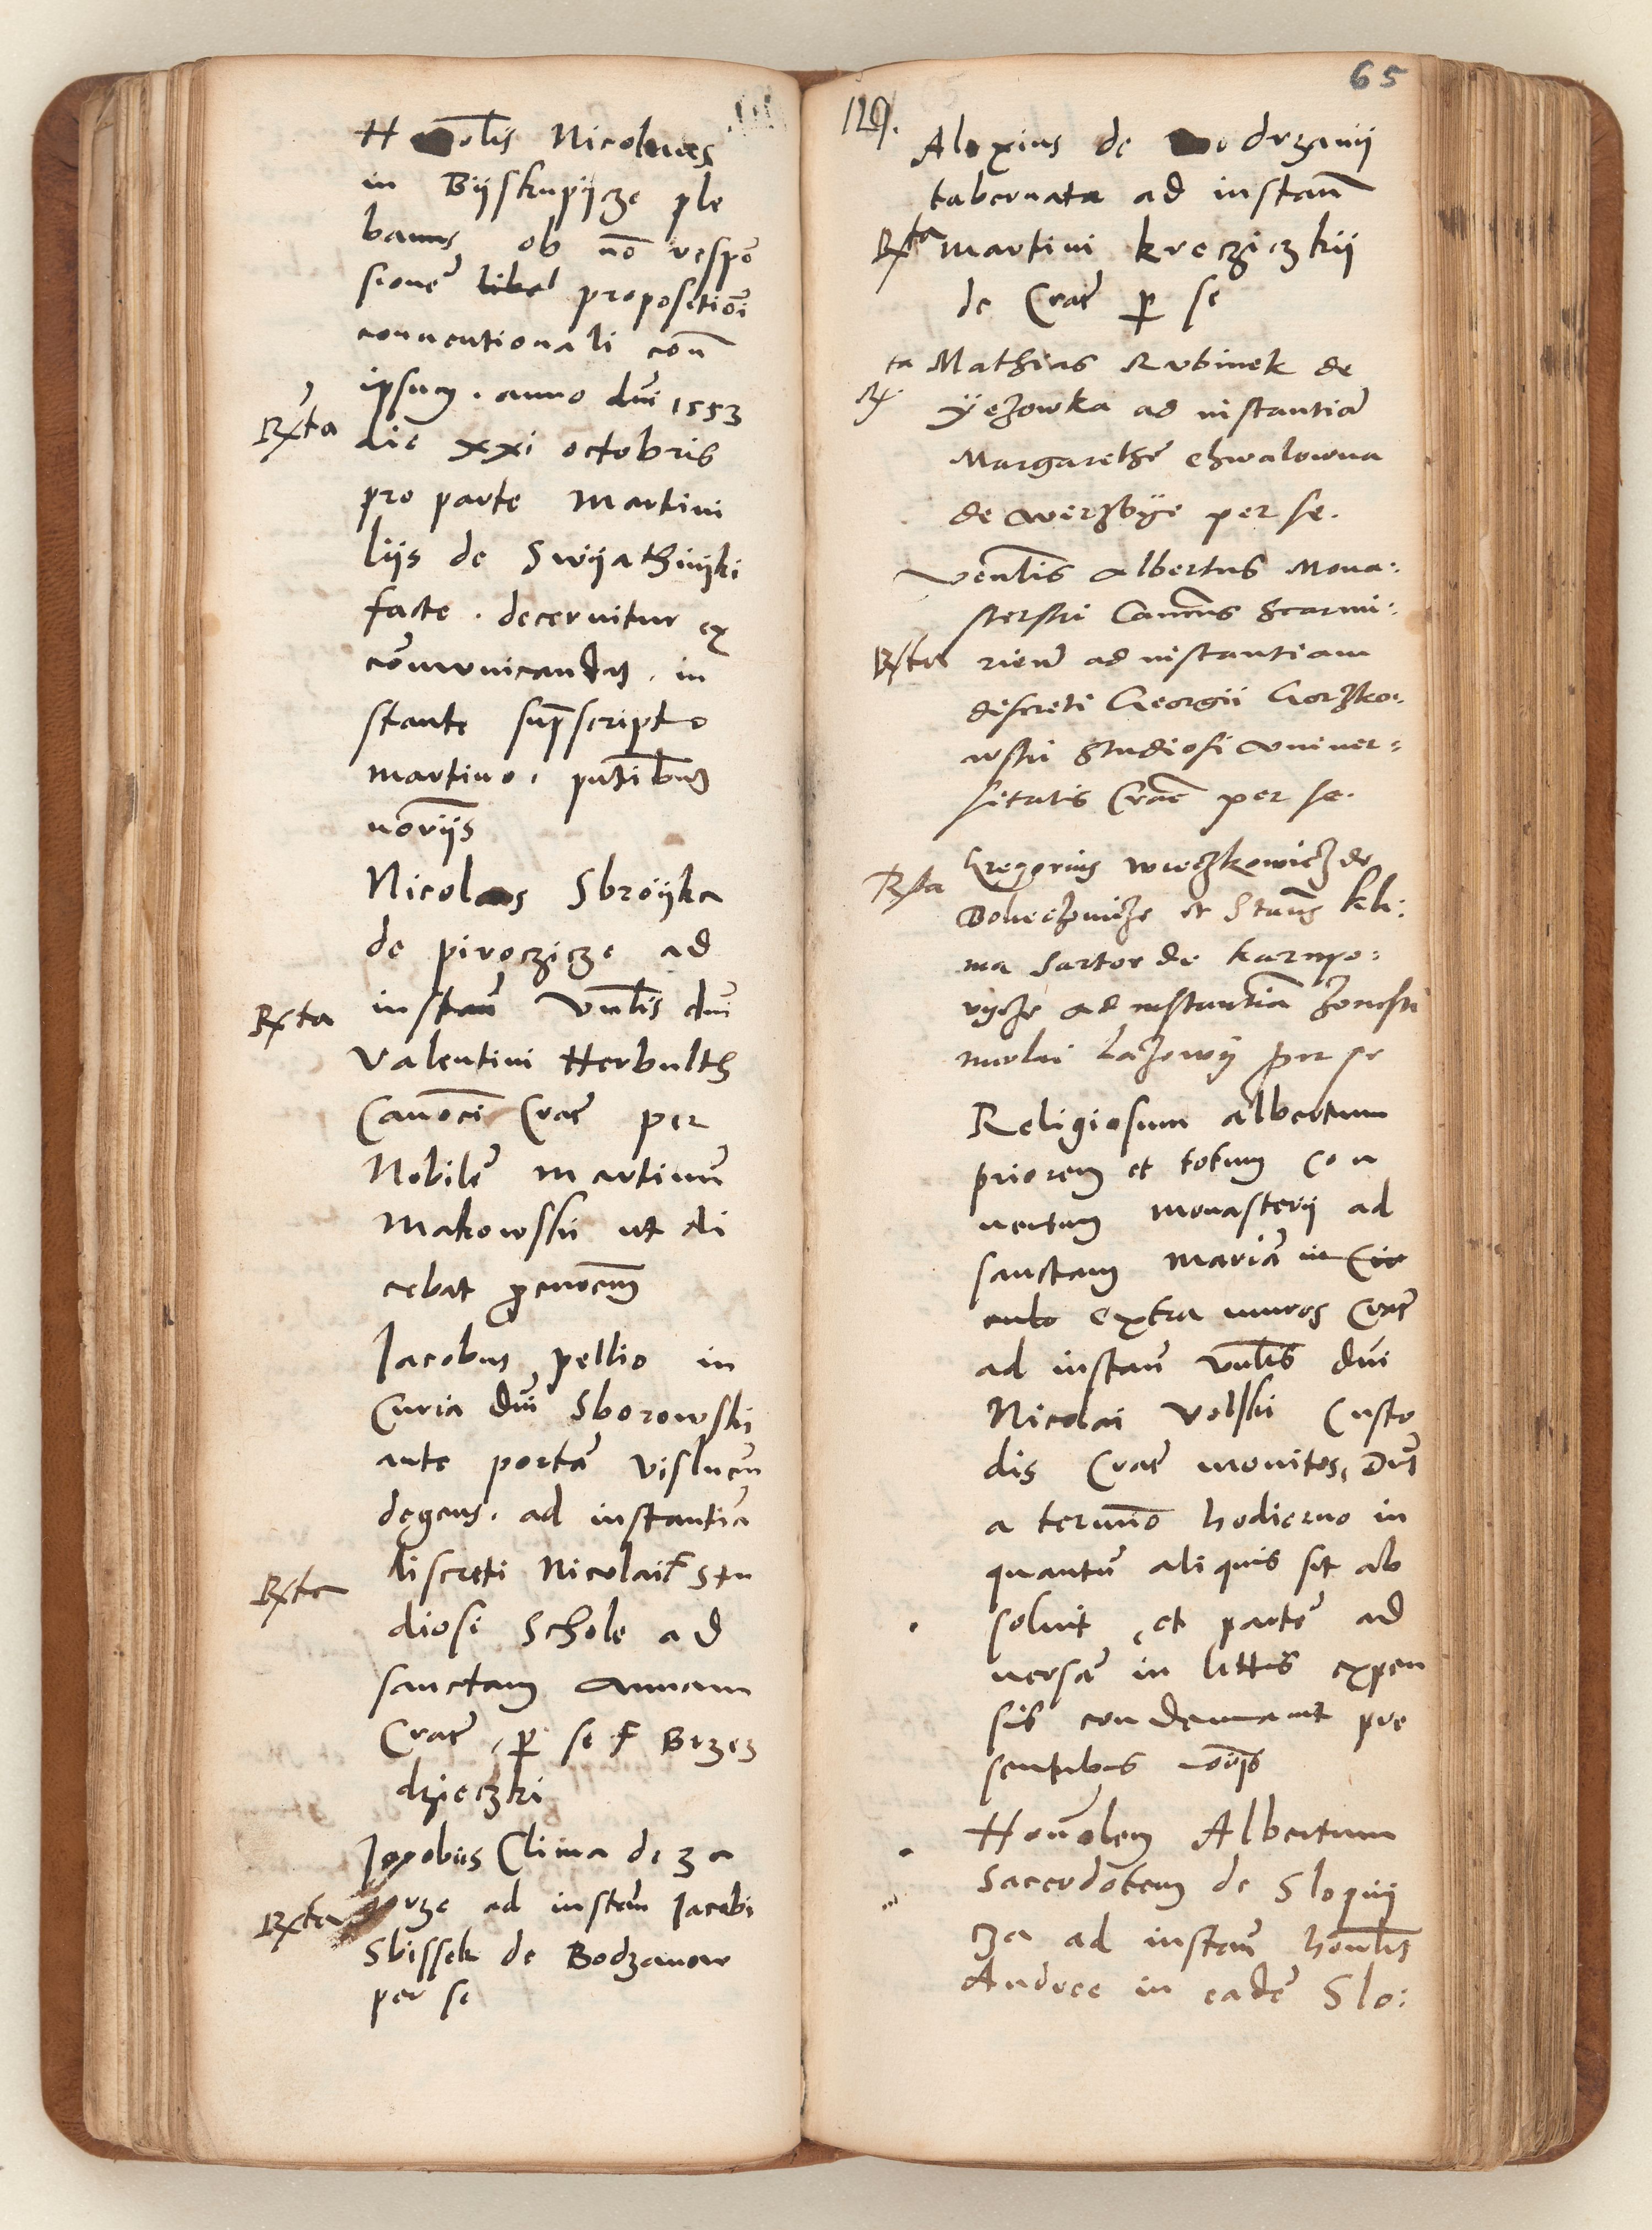 Nicolaus
in Bijskupijcze ple
banus ob nō respō
sionē libel propositiōi
conventionali con̄
ipsum . anno dn̄i 1553
Rxta
die xxi octobris
pro parte Martini
lijs de Swijathnijki
facte . decernitur ex
cōmunicandus . in
stante sup̄scripto
martino . pn̄tibus
norijs
Nicolaus Sbroijka
de piroczicze ad
Rxta instan̄ Vn̄lis dn̄i
Valentini Herbulth
Canoci Crac̄ per
Nobilē Martinū
Makowskii ut di
cebat
Iacobus pellio in
Curia dn̄i Sborowski
ante portā visluen̄
degens . ad instantiā
Rxta discreti Nicolai f Stu
diosi Schole ad
sanctam Annam
Crac̄ , p̱ se f Brzez
dzieczki
Jacobus Clima de za
Rxta gorze ad instan̄ Jacobi
Sbissek de Bodzanow
per se
65
129.
Alexius de odrzanij
tabernata ad instan̄
Rxta Martini krecziczkij
de Crac̄ p̱ se
ta Mathias Rubinek de
Rx ÿezowka ad instantiā
Margarethē chwalowna
de werzbÿe per se.
Ven̄lis Albertus Mona:
sterski Canōus Scarmi:
Rxta rien̄ ad instantiam
discreti Georgii Gorzko:
wski Studiosi univer:
sitatis Crac̄ per se.
Rxta Gregorius wieczkowicz de
et Stan̄s kli:
ma Sartor de karnpo:
vycze ad instantiā honesti
per se
Religiosum albertum
priorem et totum con
ventum monasterij ad
sanctam Mariā in Cir
culo extra muros Crac̄
ad instan̄ Vn̄lis dn̄i
Nicolai Volski Custo
dis Crac̄ monitos, Dn̄s
a termīo hodierno in
quantū aliquis sit ab
soluit , et partē ad
versā in littis expen
sis condemnavit pre
sentibus norijs
Honōlem Albertum
Sacerdotem de Slopnij
cza ad instan̄ honn̄lis
Andree in eadē Slo: